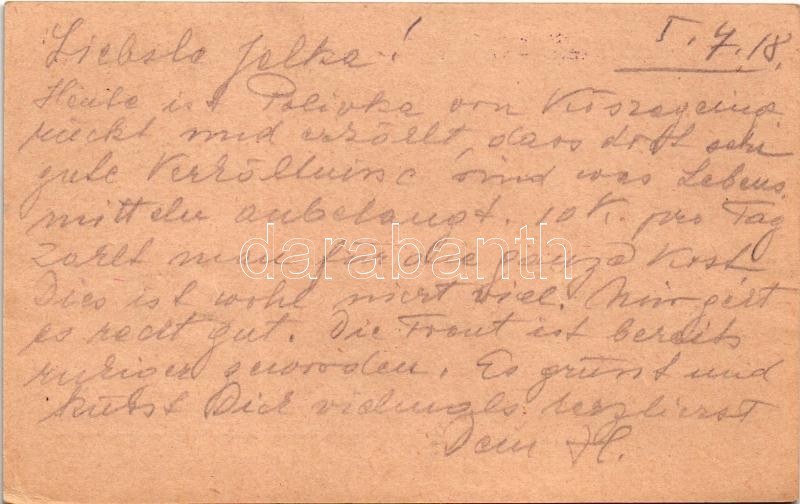 5. 7. 18.
Liebste Jelka!
Heute ist Polivka von Köszeg einge
rückt und erzählt, dass dort sehr
gute Verhältnisse sind was Lebens
mitteln anbelangt. 10 K. pro Tag
zahlt man für die ganze Kost
Dies ist wohl nicht viel. Mir geht
es recht gut. Die Front ist bereits
ruhiger geworden. Es grüsst und
küsst Dich vielmals herzlichst
Dein H.
darabanth